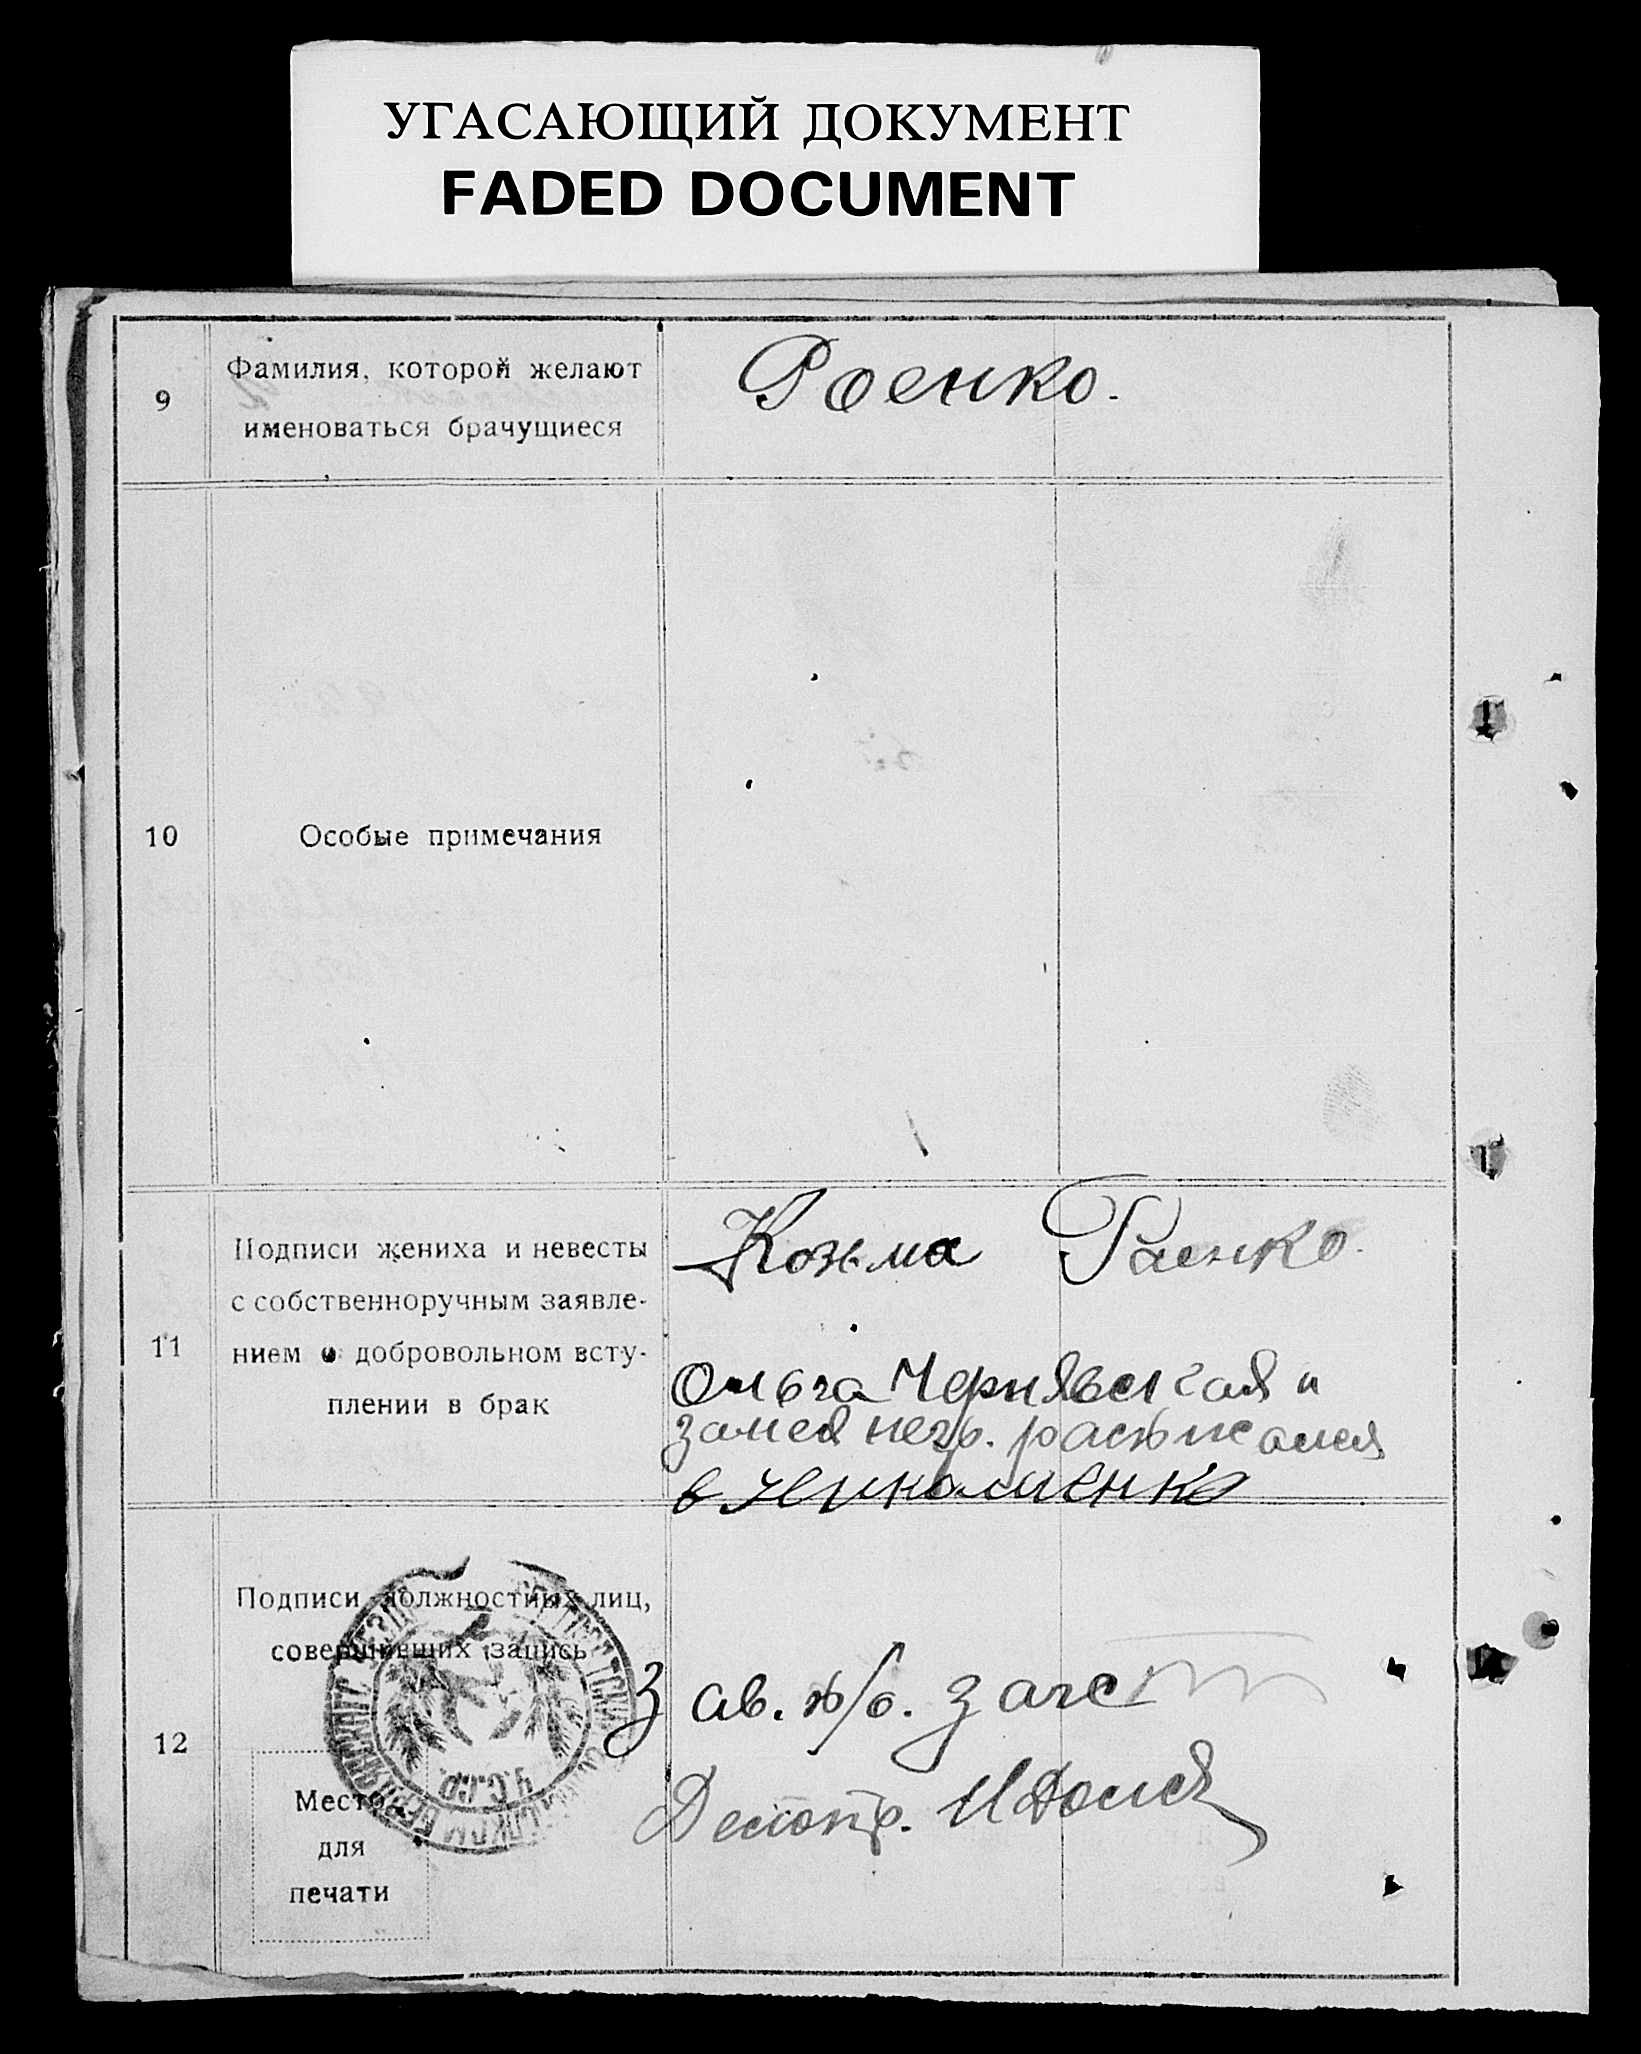 УГАСАЮЩИЙ ДОКУМЕНТ
FADED DOCUMENT
9
Фамилия, которой желают
именоваться брачущиеся
Роенко.
10
Особые примечания
11
Подписи жениха и невесты
с собственноручным заявле-
нием о добровольном всту-
плении в брак
Козьма Раенко.
Ольга Чернявская и
за нея негр. расписался
в Николаенко
12
Подписи должностных лиц,
совершивших запись
Зав. п/о. загс
Место
для
печати
У.С.С.Р.